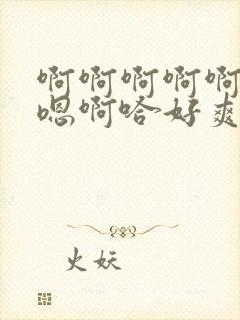 啊啊啊啊啊
嗯啊哈好爽
火妖